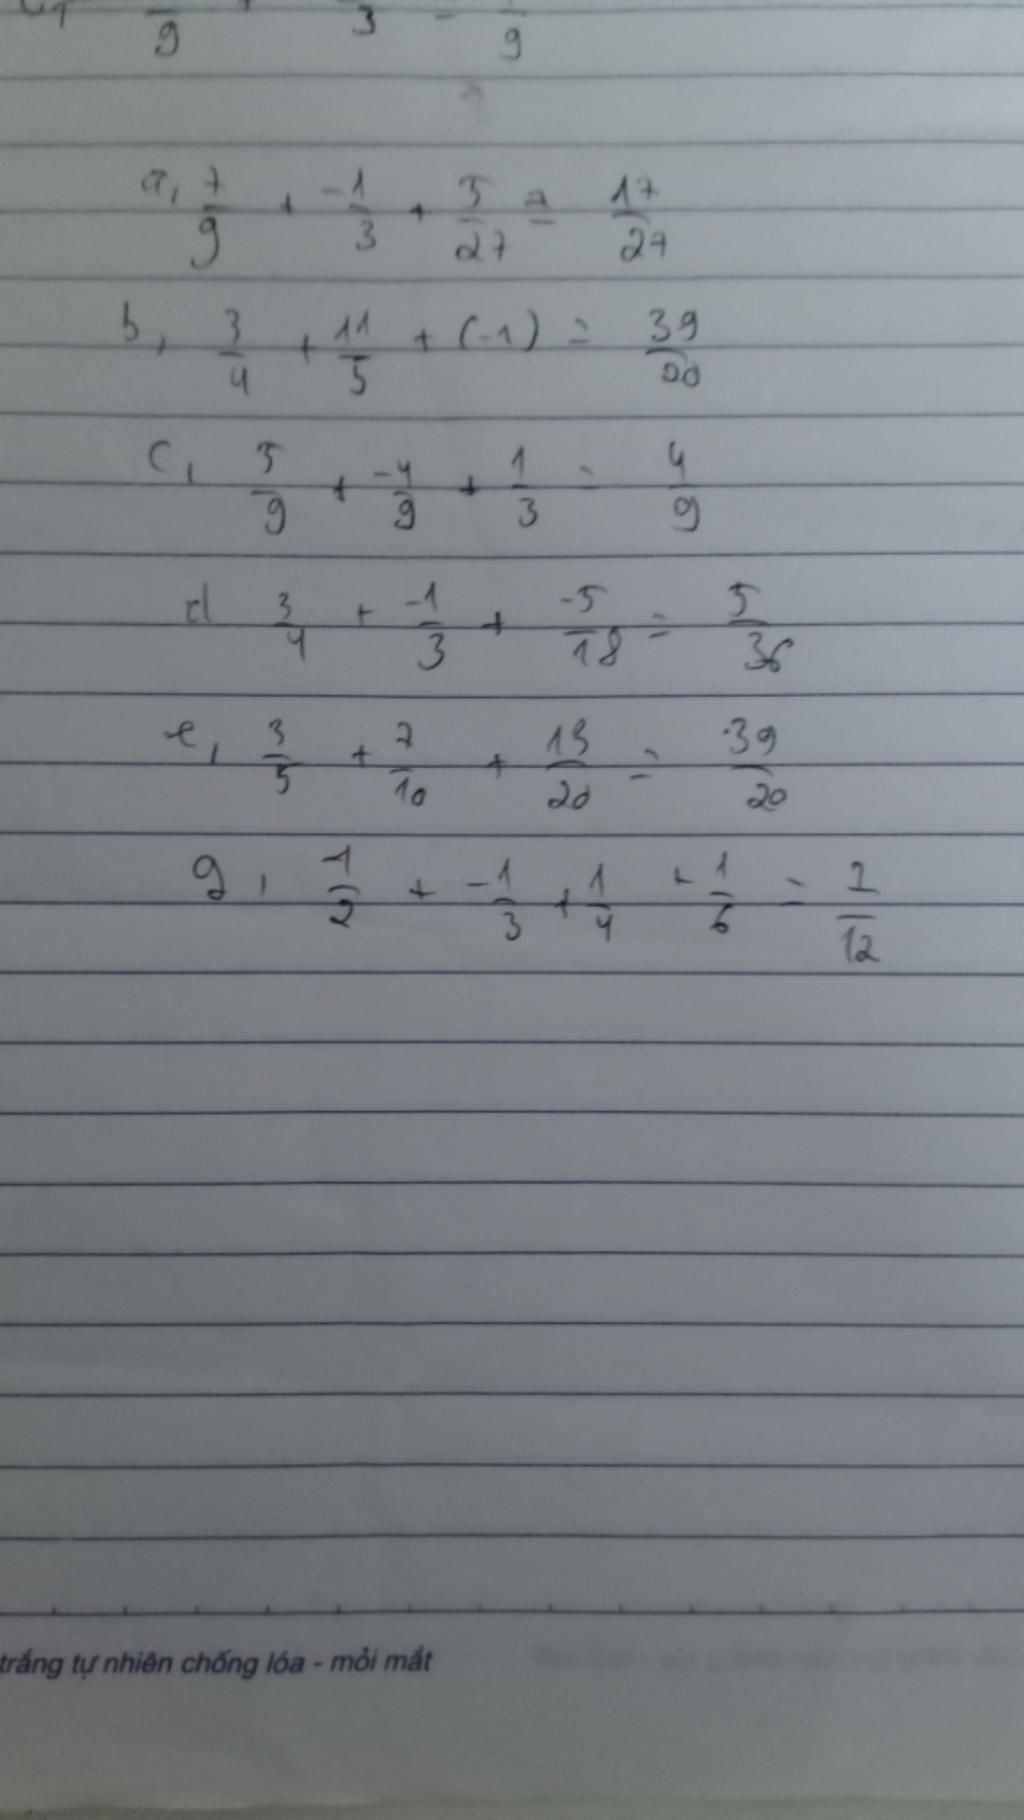 9 3 = 9
a, 7/9 + -1/3 + 5/27 = 17/27
b, 3/4 + 11/5 + (-1) = 39/20
c, 5/9 + -4/9 + 1/3 = 4/9
d 3/4 + -1/3 + -5/18 = 5/36
e, 3/5 + 7/10 + 13/20 = 39/20
g, -1/2 + -1/3 + 1/4 + 1/6 = 1/12
trắng tự nhiên chống lóa - mỏi mắt